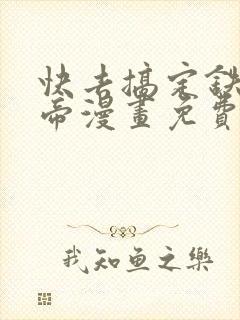 快去搞定鉄
帝漫畫免費
我知鱼之樂